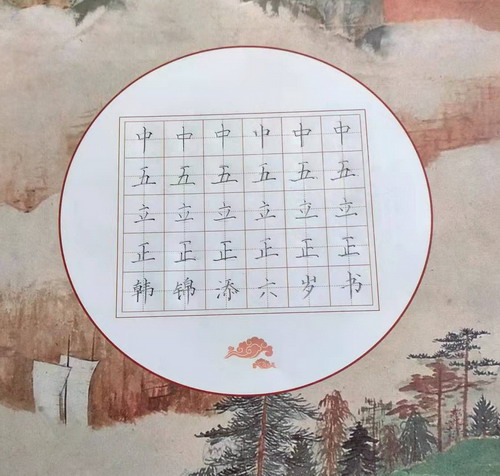 中中中中中中
五五五五五五
立立立立立立
正正正正正正
韩锦添六岁书